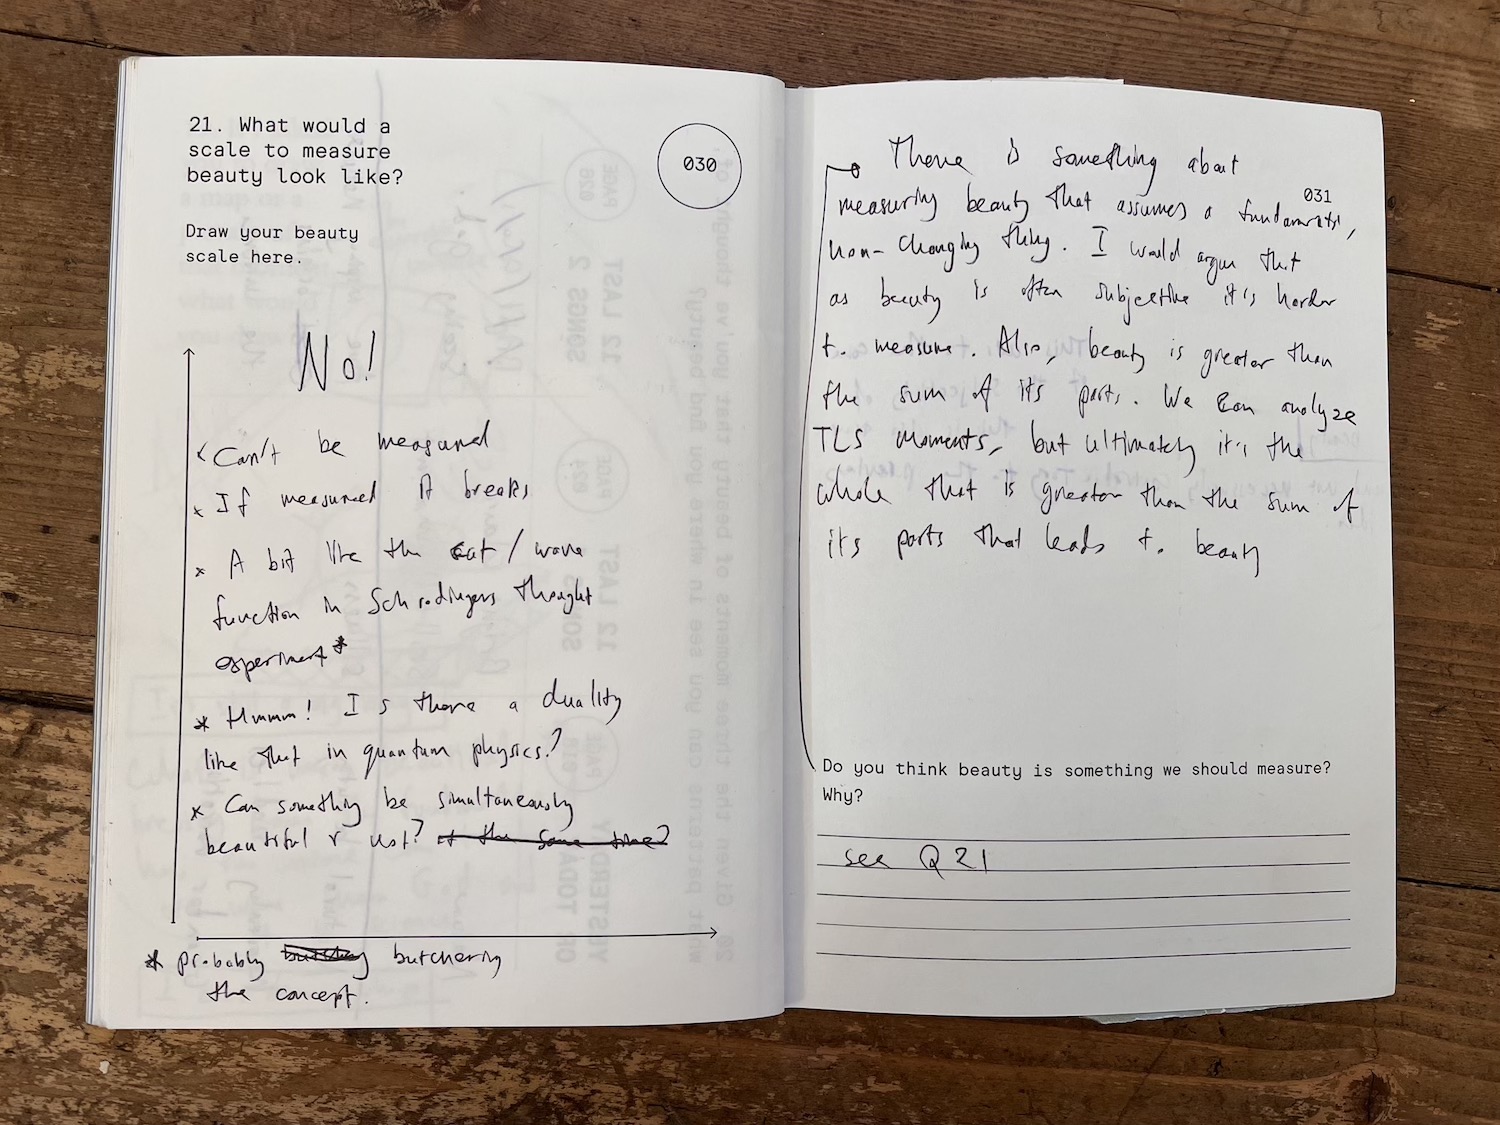 21. What would a
scale to measure
beauty look like?
030
Draw your beauty
scale here.
No!
x Can't be measured
x If measured it breaks
x A bit like the cat / wave
function in Schrodingers thought
experiment*
* Hmmm! Is there a duality
like that in quantum physics?
x Can something be simultaneously
beautiful & not? at the same time?
* probably butchering
the concept.
There is something about
031
measuring beauty that assumes a fundamental,
non-changing thing. I would argue that
as beauty is often subjective it's harder
to measure. Also, beauty is greater than
the sum of its parts. We can analyze
TLS moments, but ultimately it's the
whole that is greater than the sum of
its parts that leads to beauty
Do you think beauty is something we should measure?
Why?
see Q21